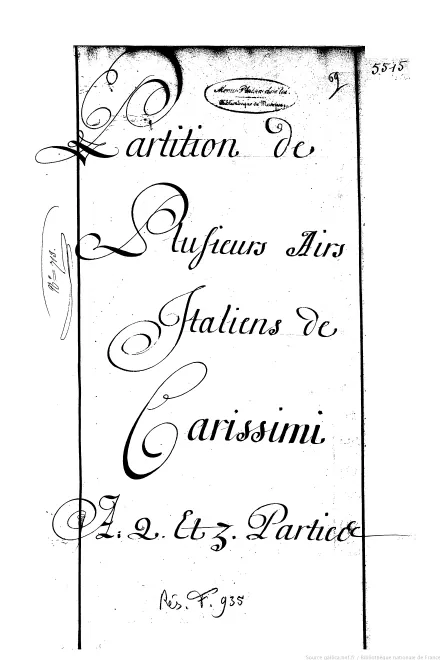 69
5515
Menus-Plaisirs du Roi.
Bibliothèque de Musique.
Partition de
Plusieurs Airs
Italiens de
Carissimi
A. 2. Et 3. Parties
Rés. F. 935
Source gallica.bnf.fr / Bibliothèque nationale de France